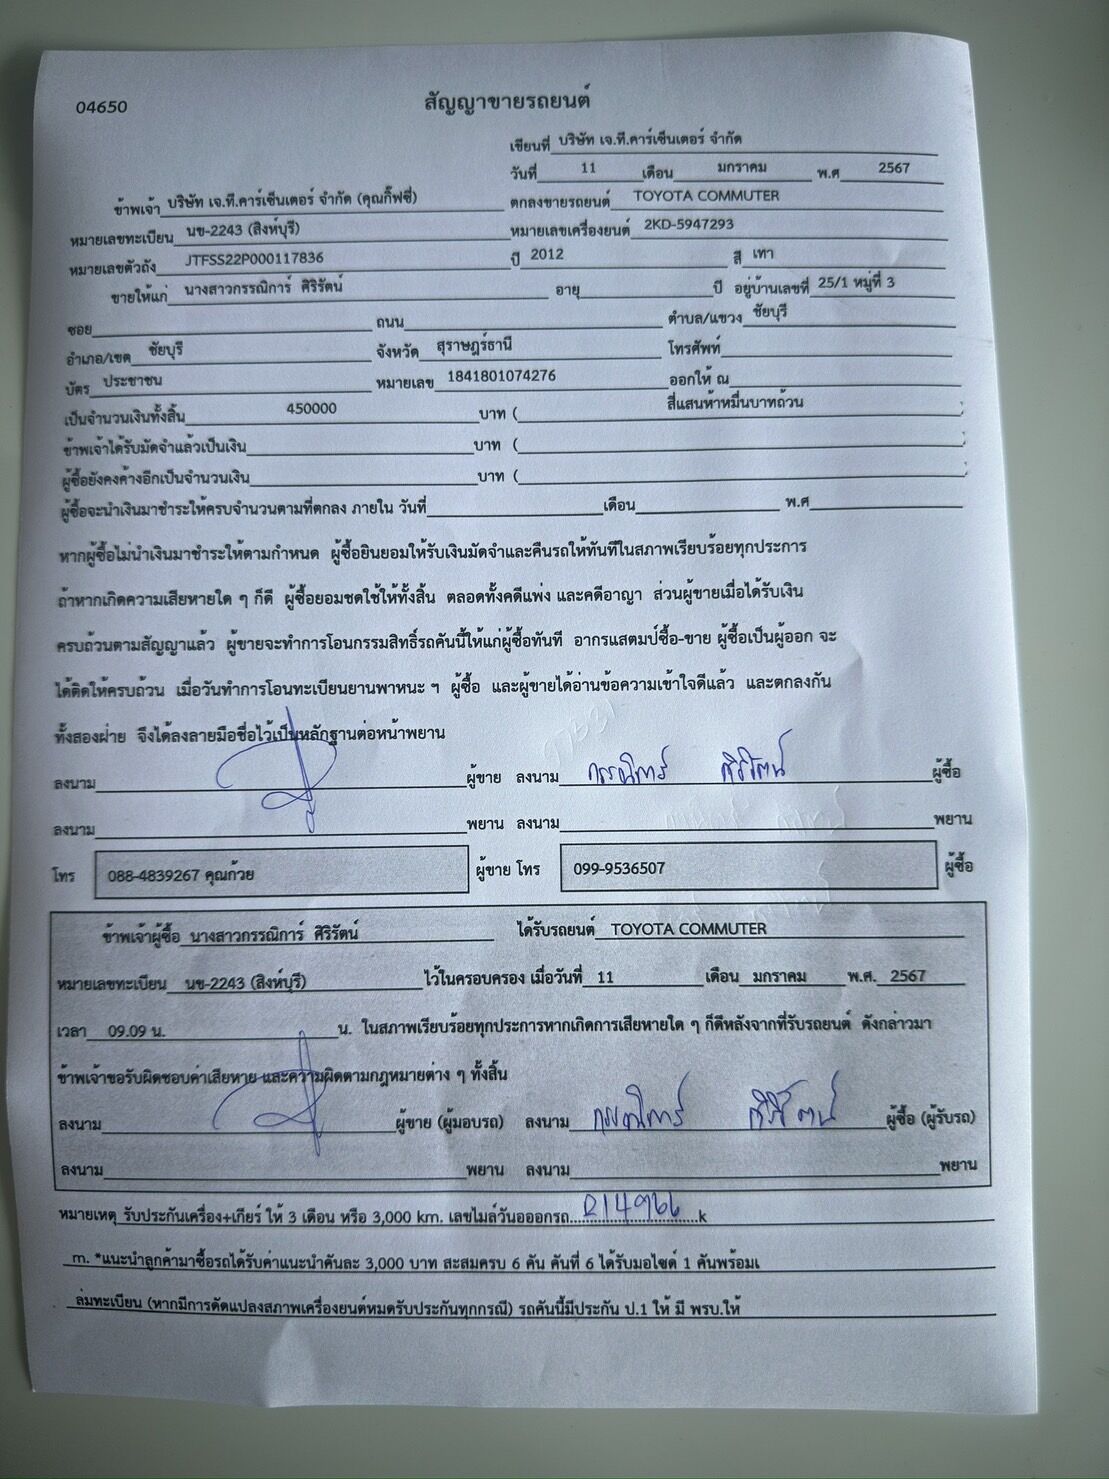 04650
สัญญาขายรถยนต์
เขียนที่ บริษัท เจ.ที.คาร์เซ็นเตอร์ จำกัด
วันที่ 11 เดือน มกราคม พ.ศ 2567
ข้าพเจ้า บริษัท เจ.ที.คาร์เซ็นเตอร์ จำกัด (คุณกิ๊ฟซี่) ตกลงขายรถยนต์ TOYOTA COMMUTER
หมายเลขทะเบียน นข-2243 (สิงห์บุรี) หมายเลขเครื่องยนต์ 2KD-5947293
หมายเลขตัวถัง JTFSS22P000117836 ปี 2012 สี เทา
ขายให้แก่ นางสาวกรรณิการ์ ศิริรัตน์ อายุ ปี อยู่บ้านเลขที่ 25/1 หมู่ที่ 3
ซอย ถนน ตำบล/แขวง ชัยบุรี
อำเภอ/เขต ชัยบุรี จังหวัด สุราษฎร์ธานี โทรศัพท์
บัตร ประชาชน หมายเลข 1841801074276 ออกให้ ณ
เป็นจำนวนเงินทั้งสิ้น 450000 บาท ( สี่แสนห้าหมื่นบาทถ้วน )
ข้าพเจ้าได้รับมัดจำแล้วเป็นเงิน บาท ( )
ผู้ซื้อยังคงค้างอีกเป็นจำนวนเงิน บาท ( )
ผู้ซื้อจะนำเงินมาชำระให้ครบจำนวนตามที่ตกลง ภายใน วันที่ เดือน พ.ศ
หากผู้ซื้อไม่นำเงินมาชำระให้ตามกำหนด ผู้ซื้อยินยอมให้รับเงินมัดจำและคืนรถให้ทันทีในสภาพเรียบร้อยทุกประการ
ถ้าหากเกิดความเสียหายใด ๆ ก็ดี ผู้ซื้อยอมชดใช้ให้ทั้งสิ้น ตลอดทั้งคดีแพ่ง และคดีอาญา ส่วนผู้ขายเมื่อได้รับเงิน
ครบถ้วนตามสัญญาแล้ว ผู้ขายจะทำการโอนกรรมสิทธิ์รถคันนี้ให้แก่ผู้ซื้อทันที อากรแสตมป์ซื้อ-ขาย ผู้ซื้อเป็นผู้ออก จะ
ได้ติดให้ครบถ้วน เมื่อวันทำการโอนทะเบียนยานพาหนะ ฯ ผู้ซื้อ และผู้ขายได้อ่านข้อความเข้าใจดีแล้ว และตกลงกัน
ทั้งสองฝ่าย จึงได้ลงลายมือชื่อไว้เป็นหลักฐานต่อหน้าพยาน
ลงนาม ผู้ขาย ลงนาม กรรณิการ์ ศิริรัตน์ ผู้ซื้อ
ลงนาม พยาน ลงนาม พยาน
โทร 088-4839267 คุณก้วย ผู้ขาย โทร 099-9536507 ผู้ซื้อ
ข้าพเจ้าผู้ซื้อ นางสาวกรรณิการ์ ศิริรัตน์ ได้รับรถยนต์ TOYOTA COMMUTER
หมายเลขทะเบียน นข-2243 (สิงห์บุรี) ไว้ในครอบครอง เมื่อวันที่ 11 เดือน มกราคม พ.ศ. 2567
เวลา 09.09 น. น. ในสภาพเรียบร้อยทุกประการหากเกิดการเสียหายใด ๆ ก็ดีหลังจากที่รับรถยนต์ ดังกล่าวมา
ข้าพเจ้าขอรับผิดชอบค่าเสียหาย และความผิดตามกฎหมายต่าง ๆ ทั้งสิ้น
ลงนาม ผู้ขาย (ผู้มอบรถ) ลงนาม กรรณิการ์ ศิริรัตน์ ผู้ซื้อ (ผู้รับรถ)
ลงนาม พยาน ลงนาม พยาน
หมายเหตุ รับประกันเครื่อง+เกียร์ ให้ 3 เดือน หรือ 3,000 km. เลขไมล์วันอออกรถ....214966....k
m. *แนะนำลูกค้ามาซื้อรถได้รับค่าแนะนำคันละ 3,000 บาท สะสมครบ 6 คัน คันที่ 6 ได้รับมอไซด์ 1 คันพร้อมเ
ล่มทะเบียน (หากมีการดัดแปลงสภาพเครื่องยนต์หมดรับประกันทุกกรณี) รถคันนี้มีประกัน ป.1 ให้ มี พรบ.ให้